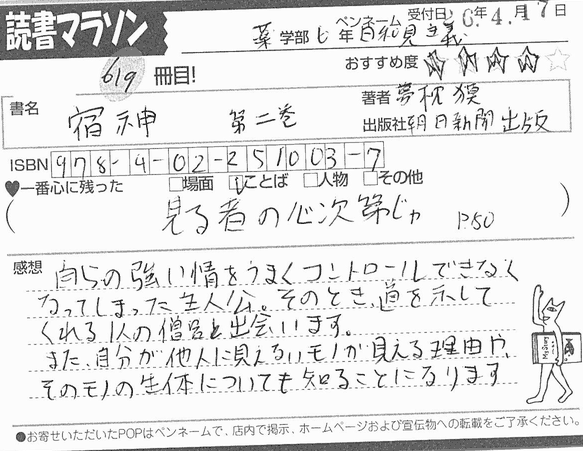 読書マラソン
ペンネーム 受付日 26年4.月17日
薬学部6年日和見主義
619 冊目!
おすすめ度 ☆☆☆☆☆
書名 宿神 第二巻
著者 夢枕獏
出版社 朝日新聞出版
ISBN 978-4-02-251003-7
♥一番心に残った □場面 □ことば □人物 □その他
(見る者の心次第じゃ P50)
感想 自らの強い情をうまくコントロールできなく
なってしまった主人公。そのとき、道を示して
くれる1人の僧呂と出会います。
また、自分が他人に見えないモノが見える理由や、
そのモノの生体についても知ることになります
●お寄せいただいたPOPはペンネームで、店内で掲示、ホームページおよび宣伝物への転載をご了承ください。